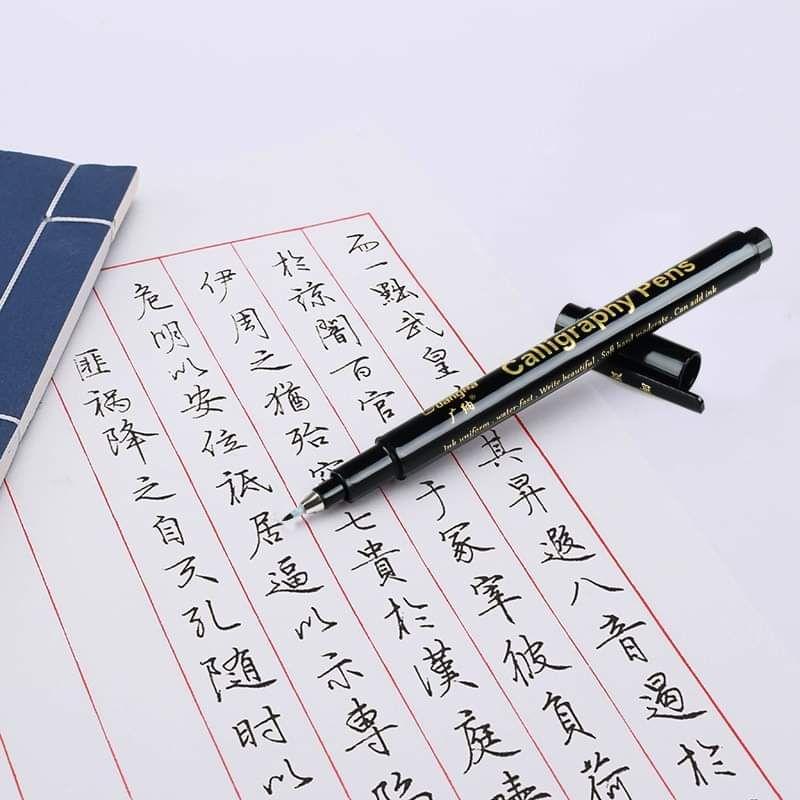 而一黜武皇其昇遐八音遏於
於諒闇百官于冢宰彼負荷
伊周之猶殆七貴於漢庭
危明以安位祇居逼以示專陷
匪禍降之自天孔隨時以
Calligraphy Pens
Ink uniform · water-fast · Write beautiful · Soft hard moderate · Can add ink